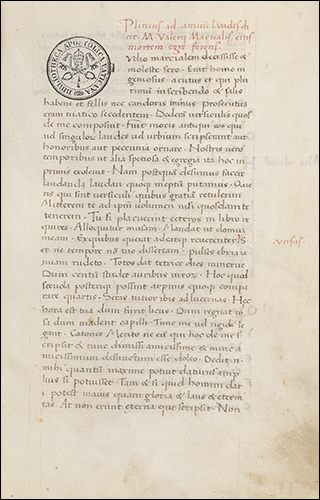 BIBLIOTHECA APOSTOLICA VATICANA
Plinius ad amicū laudes dicit
M. Valerii Martialis eius
mortem egre ferens.
Udio marcialem decessisse &
moleste fero. Erat homo in
geniosus acutus et qui plu
rimū in scribendo & salis
haberet et fellis nec candoris minus. Prosecutus
eram uiatico secedentem. Dederā uersiculis quos
de me composuit. Fuit moris antiqui eos qui
uel singulorū laudes uel urbium scripserant aut
honoribus aut peccunia ornare. Nostris uero
temporibus ut alia speciosa & egregia ita hoc in
primis exoleuit. Nam postquā desiimus facere
laudanda laudari quoqȝ ineptū putamus. Quæ
ris qui sint uersiculi quibus gratiā retulerim
Mitterem te ad ipm̄ uolumen nisi quosdam te
nerem. Tu si placuerint ceteros in libro re
quires. Alloquitur musam. Mandat ut domū
meam. Exquibus querat adeat reuerenter
et ne tempore nō tuo disertam pulses ebria ia
nuam uideto. Totos dat tetrice dies minerue
Dum centū studet auribus uirorū. Hoc quod
secula posteriqȝ possint arpinis quoqȝ compa
rare quartis. Seras tutior ibis ad lucernas. Hec
hora est tua dum furit lieus. Dum regnat ro
sa dum madent capilli. Tunc me uel rigidi le
gant. Catones. Merito ne eū qui hoc de me
scripsit & tunc dimisi amicissime & nunc a
micissimum defunctum esse doleo. Dedit .n.
mihi quantū maxime potuit daturus amp
lius si potuisset. Tam & si quid homini dar
i potest maius quam gloria & laus & eterni
tas. At non erunt eterna que scripsit. Non
uersus.